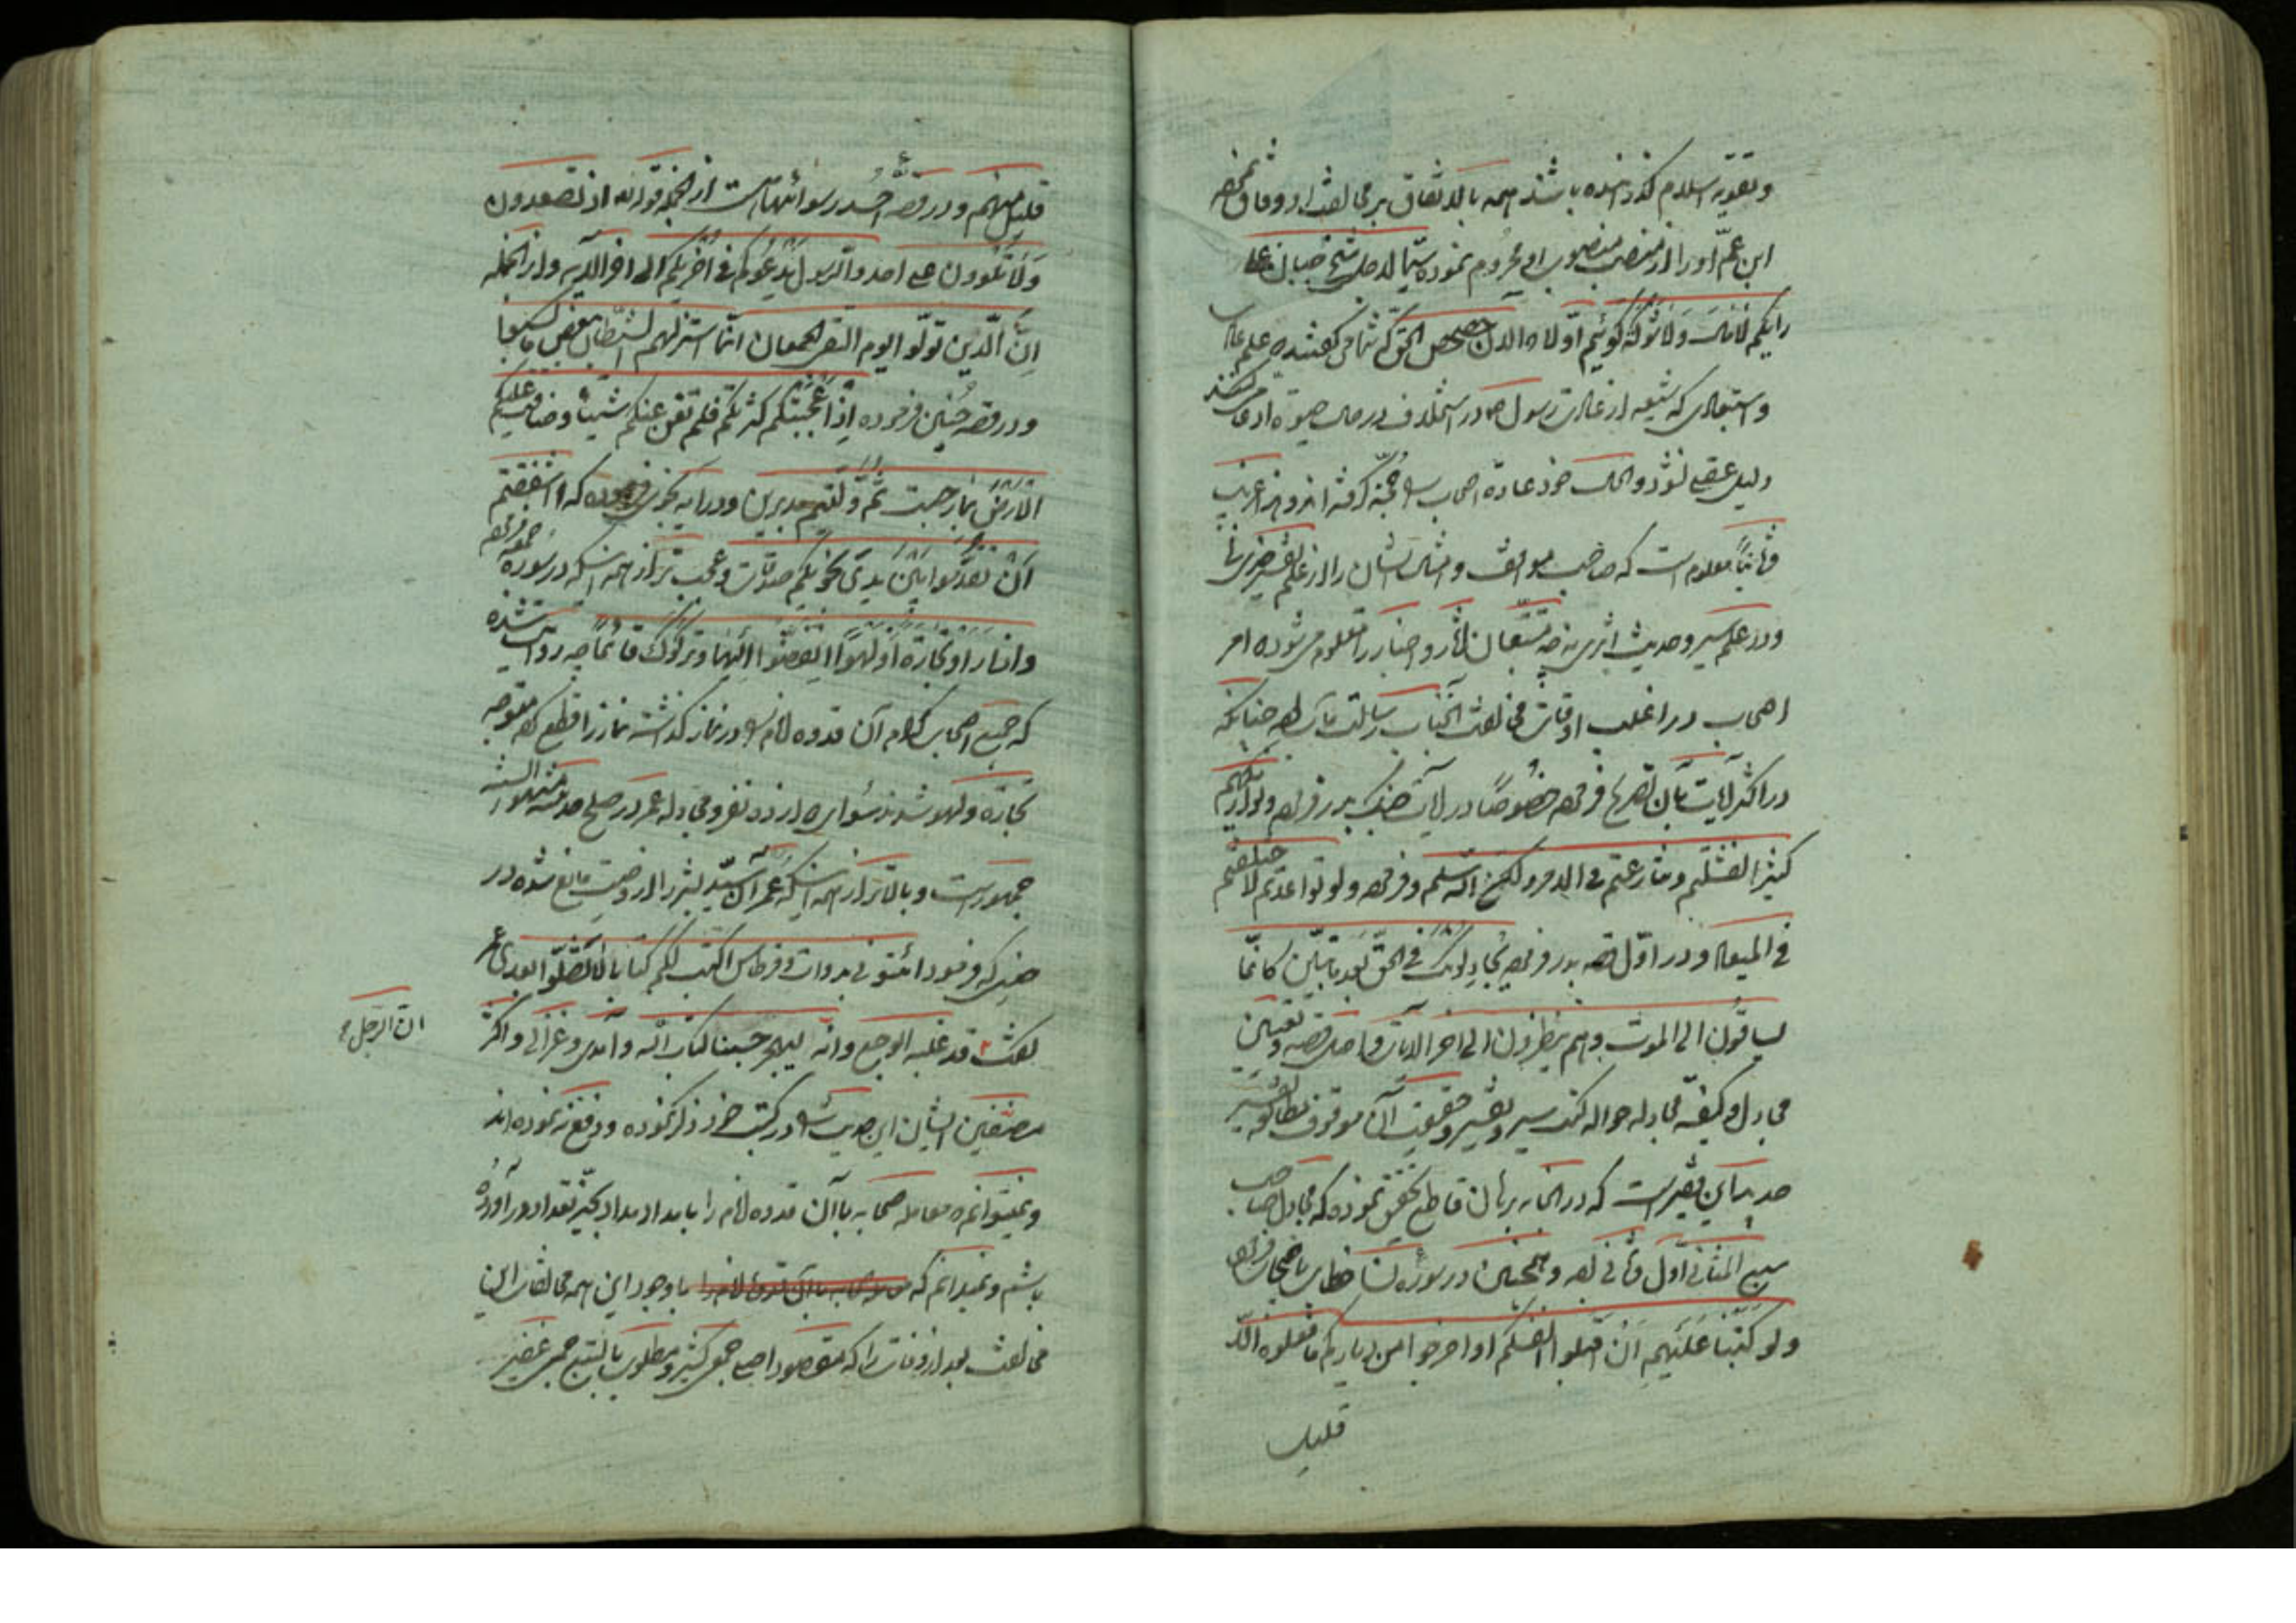 و تقویه اسلام گذرانیده باشند همه بالاتفاق بر مخالفت او وفاق نموده
ابن عم او را از منصب منصوبی او محروم نموده
رایکم لانا و لا نوله گوئیم اولا الان حصحص الحق که شما می گفتید علم
و استبعادی که شیعه از رسول در استخلاف در حال حیوة ادعا می کنند
دلیل عقلی نبود والحال خود عادة اصحاب را حجة گرفته اند و هذا غریب
و ثانیا معلوم است که صاحب مواقف و امثال ایشان را از علم تفسیر خبری نه
و در علم سیر و حدیث اثری نه چه متتبعان آثار و اخبار را معلوم می شود که امر
اصحاب در اغلب اوقات مخالفت آنجناب رسالت مآب بوده چنانکه
در اکثر آیات بآن تصریح فرموده خصوصا در آیات جنگ بدر فرموده ولو اریکهم
کثیرا لفشلتم و تنازعتم فی الامر ولکن الله سلم و فرموده ولو تواعدتم لاختلفتم
فی المیعاد و در اول قصه بدر فرموده یجادلونک فی الحق بعد ما تبین کانما
یساقون الی الموت و هم ینظرون الی اخر الایات و اصل قصه و تعیین
مجادل و کیفیة مجادله حواله کتب سیر و تفسیر و حقیقت آن موقوف بمطالعه تفسیر
این فقیرست که در آنجا ببرهان قاطع تحقیق نموده که مجادل صاحب
سبع المثانی اول و ثانی بوده و همچنین در سوره نسا خطاب باصحاب فرموده
ولو کتبنا علیهم ان اقتلوا انفسکم او اخرجوا من دیارکم ما فعلوه الا
قلیل
قلیل منهم و در قصه احد رسوائیهاست از انجمله قوله تعالی اذ تصعدون
ولا تلوون علی احد والرسول یدعوکم فی اخریکم الی اخر الآیه و از انجمله
ان الذین تولوا یوم التقی الجمعان انما استزلهم الشیطان ببعض ما کسبوا
و در قصه حنین فرموده اذ اعجبتکم کثرتکم فلم تغن عنکم شیئا و ضاقت علیکم
الارض بما رحبت ثم ولیتم مدبرین و در آیه نجوی فرموده که ءاشفقتم
ان تقدموا بین یدی نجویکم صدقات و عجب تر از همه اینکه در سوره جمعه فرموده
واذا راوا تجارة او لهوا انفضوا الیها وترکوک قائما چه روایت شده
که جمیع اصحاب کلام آن قدوه انام را در نماز گذاشته نماز را قطع کرده متوجه
تجارة و لهو شدند سوای دوازده نفر و مجادله عمر در صلح حدیبیه مشهور السنه
جمهورست و بالاتر از همه اینکه عمر آن سید بشر را از وصیت مانع شده در
حینی که فرمود ائتونی بدوات و قرطاس اکتب لکم کتابا لن تضلوا بعدی عمر
گفت قد غلبه الوجع وانه لیهجر حسبنا کتاب الله و آمدی و غزالی و اکثر
ان الرجل
مصنفین ایشان این حدیث را در کتب خود ذکر نموده و دفع نه نموده اند
و نمیتوانم که معامله صحابه با آن قدوه انام را بامداد مداد بحیز تعداد در آورده
باشم و نمیدانم که با وجود این همه مخالفات این
مخالفت بعد از وفات را که مقصود اصلی جمعی کثیر و مطلوب بالتبع جمعی غفیر